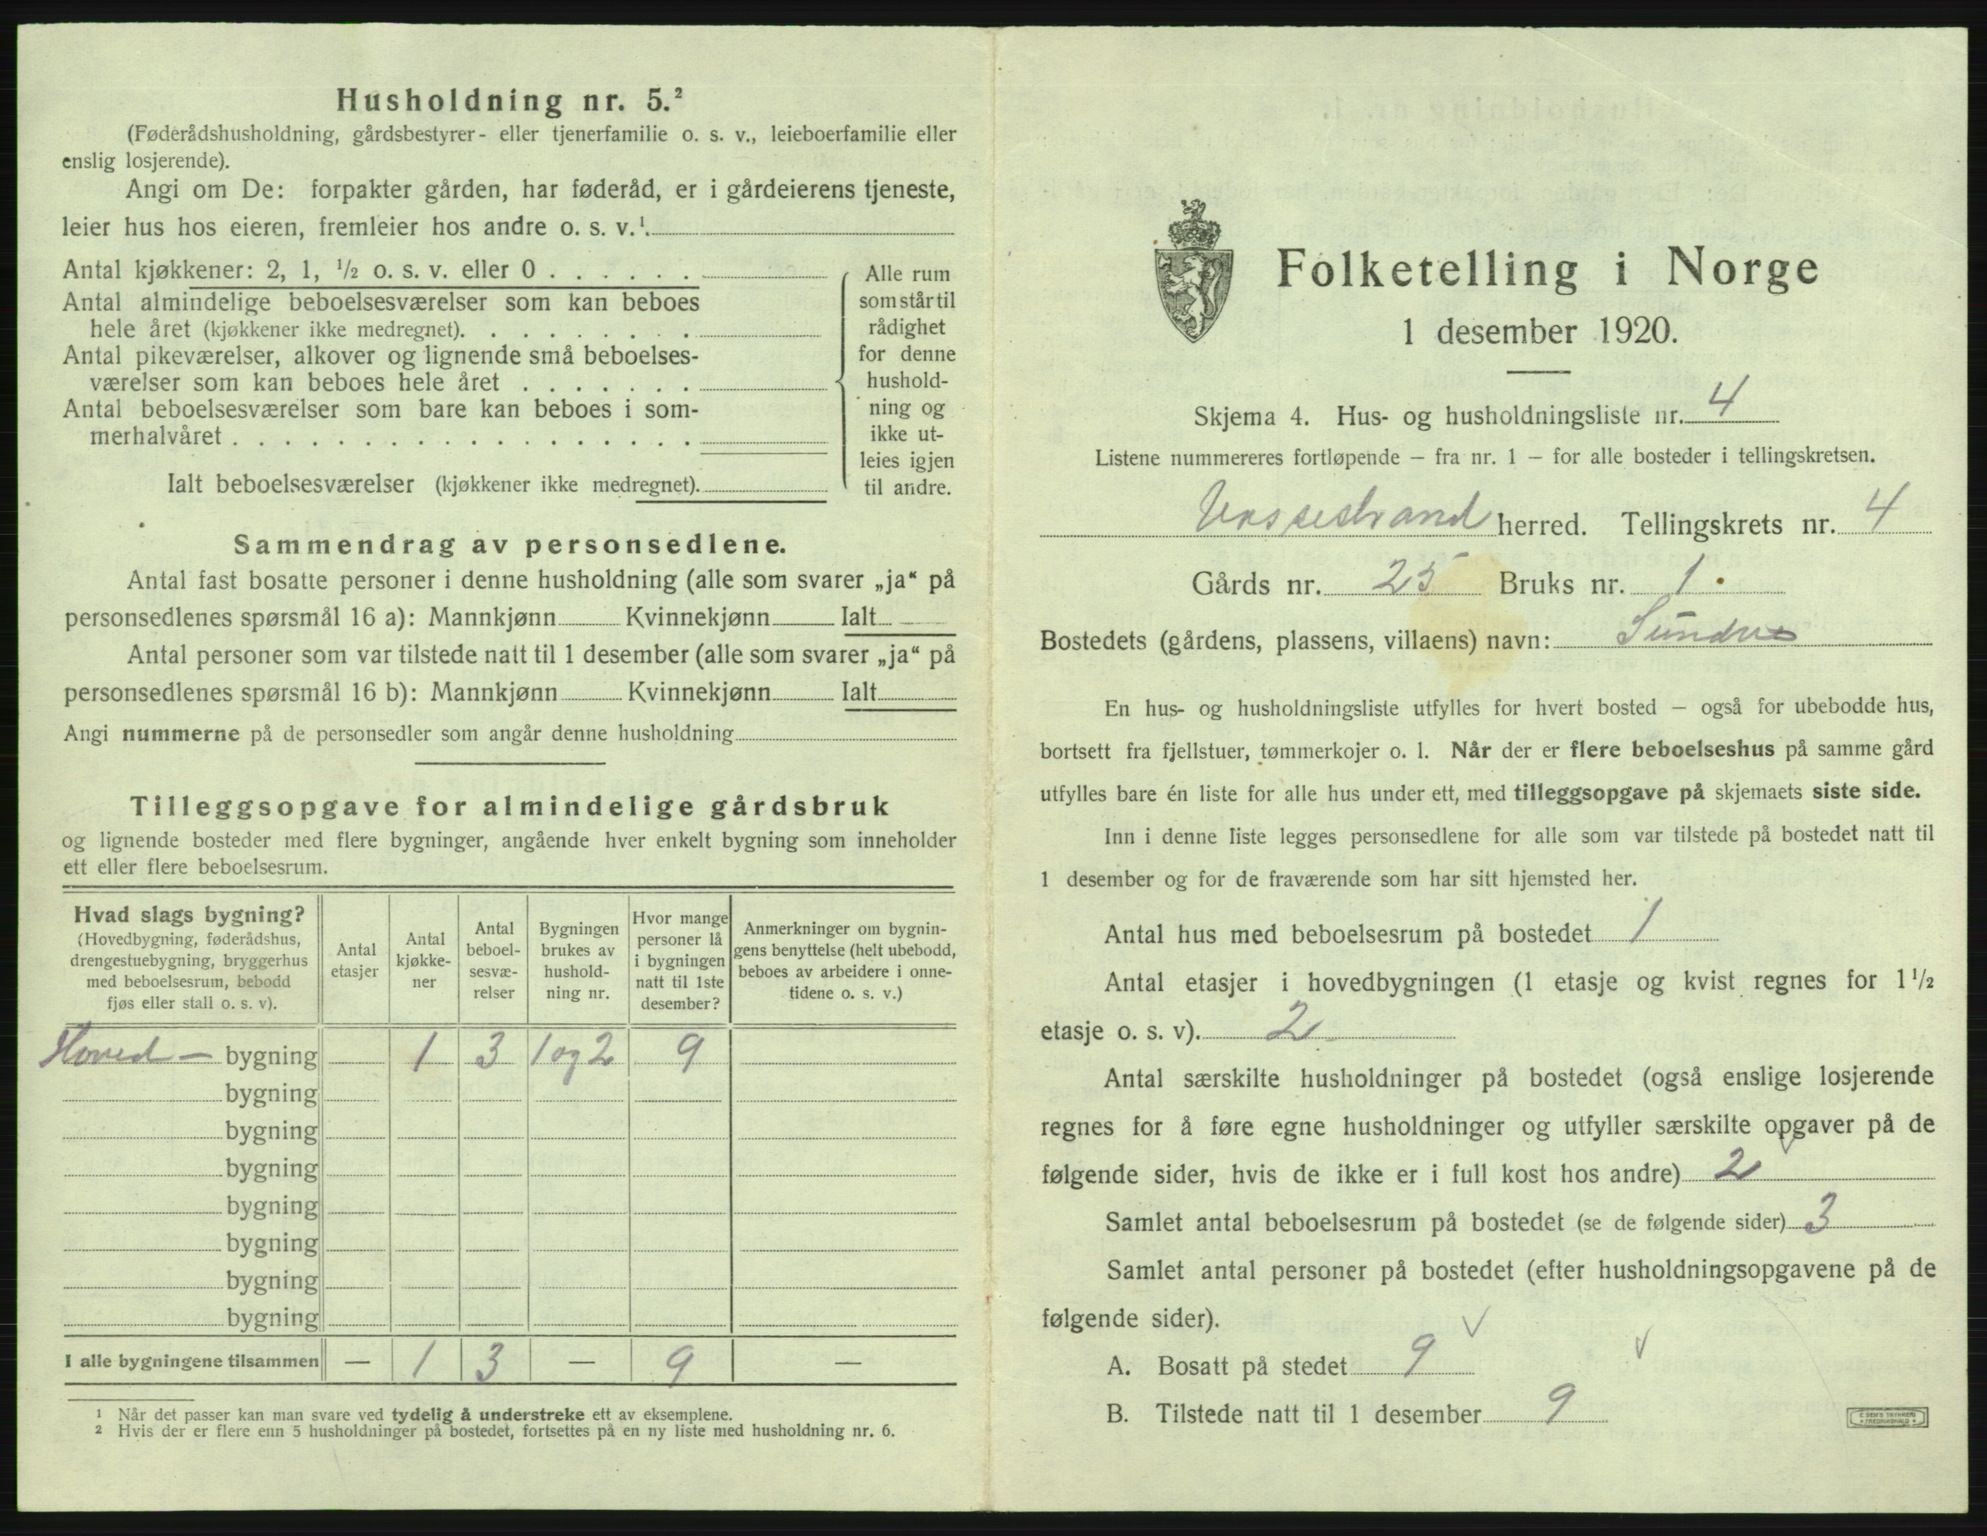 Husholdning nr. 5.²
(Føderådshusholdning, gårdsbestyrer- eller tjenerfamilie o. s. v., leieboerfamilie eller
enslig losjerende).
Angi om De: forpakter gården, har føderåd, er i gårdeierens tjeneste,
leier hus hos eieren, fremleier hos andre o. s. v.¹
Antal kjøkkener: 2, 1, ½ o. s. v. eller 0 . . . . . .
Antal almindelige beboelsesværelser som kan beboes
hele året (kjøkkener ikke medregnet). . . . . . . .
Antal pikeværelser, alkover og lignende små beboelses-
værelser som kan beboes hele året . . . . . . .
Antal beboelsesværelser som bare kan beboes i som-
merhalvåret . . . . . . . . . . . . . . . . . .
Ialt beboelsesværelser (kjøkkener ikke medregnet).
Alle rum
som står til
rådighet
for denne
hushold-
ning og
ikke ut-
leies igjen
til andre.
Sammendrag av personsedlene.
Antal fast bosatte personer i denne husholdning (alle som svarer „ja“ på
personsedlenes spørsmål 16 a): Mannkjønn Kvinnekjønn Ialt
Antal personer som var tilstede natt til 1 desember (alle som svarer „ja“ på
personsedlenes spørsmål 16 b): Mannkjønn Kvinnekjønn Ialt
Angi nummerne på de personsedler som angår denne husholdning
Tilleggsopgave for almindelige gårdsbruk
og lignende bosteder med flere bygninger, angående hver enkelt bygning som inneholder
ett eller flere beboelsesrum.
Hvad slags bygning?
(Hovedbygning, føderådshus,
drengestuebygning, bryggerhus
med beboelsesrum, bebodd
fjøs eller stall o. s. v).
Antal
etasjer
Antal
kjøkke-
ner
Antal
beboel-
sesvæ-
relser
Bygningen
brukes av
hushold-
ning nr.
Hvor mange
personer lå
i bygningen
natt til 1ste
desember?
Anmerkninger om bygnin-
gens benyttelse (helt ubebodd,
beboes av arbeidere i onne-
tidene o. s. v.)
Hoved - bygning 1 3 1 og 2 9
bygning
bygning
bygning
bygning
bygning
bygning
bygning
I alle bygningene tilsammen — 1 3 — 9 —
¹ Når det passer kan man svare ved tydelig å understreke ett av eksemplene.
² Hvis der er flere enn 5 husholdninger på bostedet, fortsettes på en ny liste med husholdning nr. 6.
Folketelling i Norge
1 desember 1920.
Skjema 4. Hus- og husholdningsliste nr. 4
Listene nummereres fortløpende – fra nr. 1 – for alle bosteder i tellingskretsen.
Vossestrand herred. Tellingskrets nr. 4
Gårds nr. 25 Bruks nr. 1
Bostedets (gårdens, plassens, villaens) navn: Sundve
En hus- og husholdningsliste utfylles for hvert bosted – også for ubebodde hus,
bortsett fra fjellstuer, tømmerkojer o. l. Når der er flere beboelseshus på samme gård
utfylles bare én liste for alle hus under ett, med tilleggsopgave på skjemaets siste side.
Inn i denne liste legges personsedlene for alle som var tilstede på bostedet natt til
1 desember og for de fraværende som har sitt hjemsted her.
Antal hus med beboelsesrum på bostedet 1
Antal etasjer i hovedbygningen (1 etasje og kvist regnes for 1½
etasje o. s. v). 2
Antal særskilte husholdninger på bostedet (også enslige losjerende
regnes for å føre egne husholdninger og utfyller særskilte opgaver på de
følgende sider, hvis de ikke er i full kost hos andre) 2
Samlet antal beboelsesrum på bostedet (se de følgende sider) 3
Samlet antal personer på bostedet (efter husholdningsopgavene på de
følgende sider).
A. Bosatt på stedet 9
B. Tilstede natt til 1 desember 9